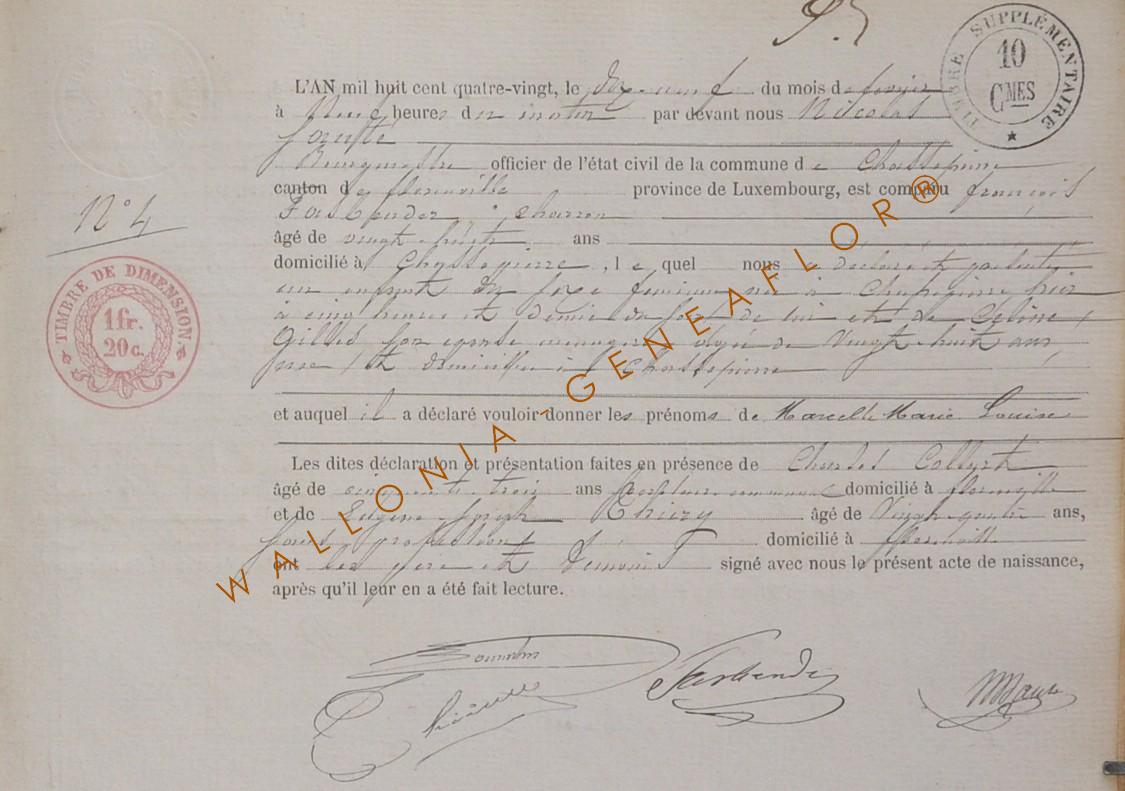 TIMBRE SUPPLÉMENTAIRE
10
CMES
L'AN mil huit cent quatre-vingt, le dix-neuf du mois de
à neuf heures du matin par devant nous Nicolas
Bourgmestre officier de l'état civil de la commune de Chassepierre
canton de Florenville province de Luxembourg, est comparu françois
charron
N° 4
âgé de vingt-huit ans
domicilié à Chassepierre, le quel nous a déclaré et présenté
TIMBRE DE DIMENSION.
1 fr.
20 c.
un enfant du sexe féminin née à Chassepierre hier
à cinq heures et demie du soir de lui et de Céline
Gilles son épouse ménagère âgée de Vingt-huit ans
née et domiciliée à Chassepierre
et auquel il a déclaré vouloir donner les prénoms de Marcelle Marie Louise
Les dites déclaration et présentation faites en présence de Charles
âgé de cinquante trois ans communal domicilié à florenville
et de Eugène Joseph Thiery âgé de Vingt-quatre ans,
sans profession domicilié à florenville
ont les père et témoins signé avec nous le présent acte de naissance,
après qu'il leur en a été fait lecture.
WALLONIA-GENEAFLOR®